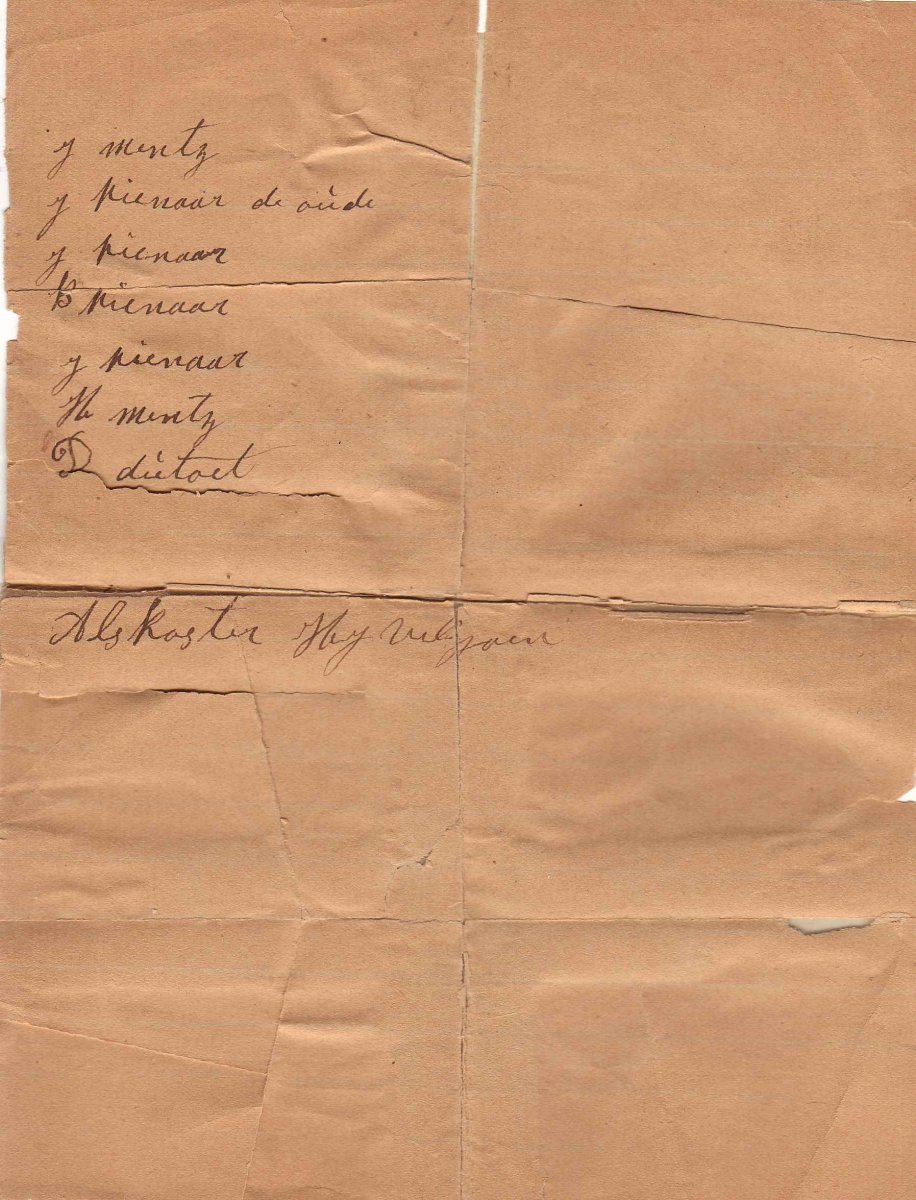 J mentz
J Pienaar de oùde
J Pienaar
P Pienaar
J Pienaar
H mentz
D dùtoet
Als Koster H J Viljoen